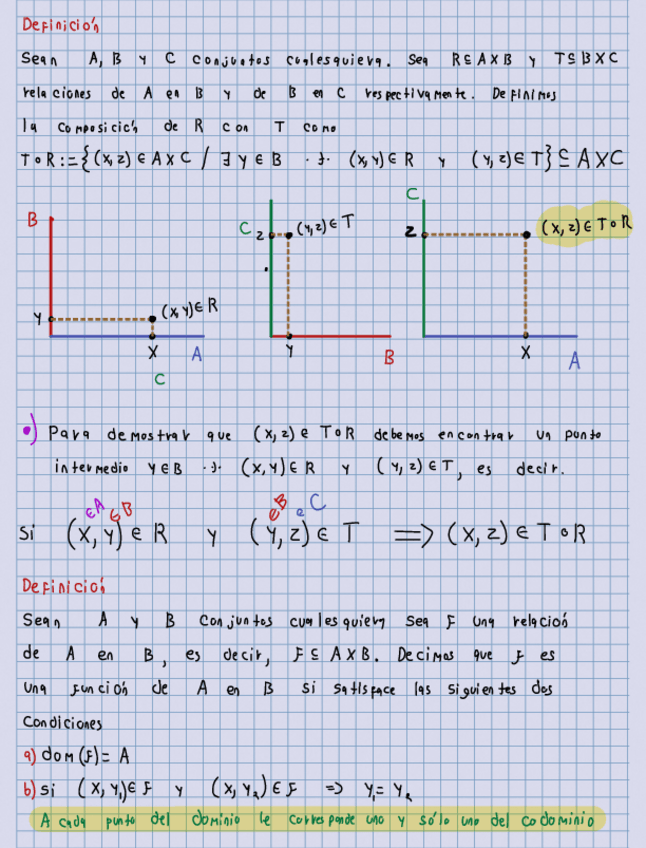 Definición
Sean A, B y C conjuntos cualesquiera. Sea R⊆A×B y T⊆B×C
relaciones de A en B y de B en C respectivamente. Definimos
la composición de R con T como
T∘R:={(x,z)∈A×C / ∃ y∈B ·∋· (x,y)∈R y (y,z)∈T}⊆A×C
B
y
(x,y)∈R
x
A
C
C
z
(y,z)∈T
y
B
C
z
(x,z)∈T∘R
x
A
•) Para demostrar que (x,z)∈T∘R debemos encontrar un punto
intermedio y∈B ·∋· (x,y)∈R y (y,z)∈T, es decir.
∈A ∈B ∈B ∈C
si (x,y)∈R y (y,z)∈T ⟹ (x,z)∈T∘R
Definición
Sean A y B conjuntos cualesquiera sea f una relación
de A en B, es decir, f⊆A×B. Decimos que f es
una función de A en B si satisface las siguientes dos
condiciones
a) dom(f)= A
b) si (x,y₁)∈f y (x,y₂)∈f ⇒ y₁=y₂
A cada punto del dominio le corresponde uno y sólo uno del codominio